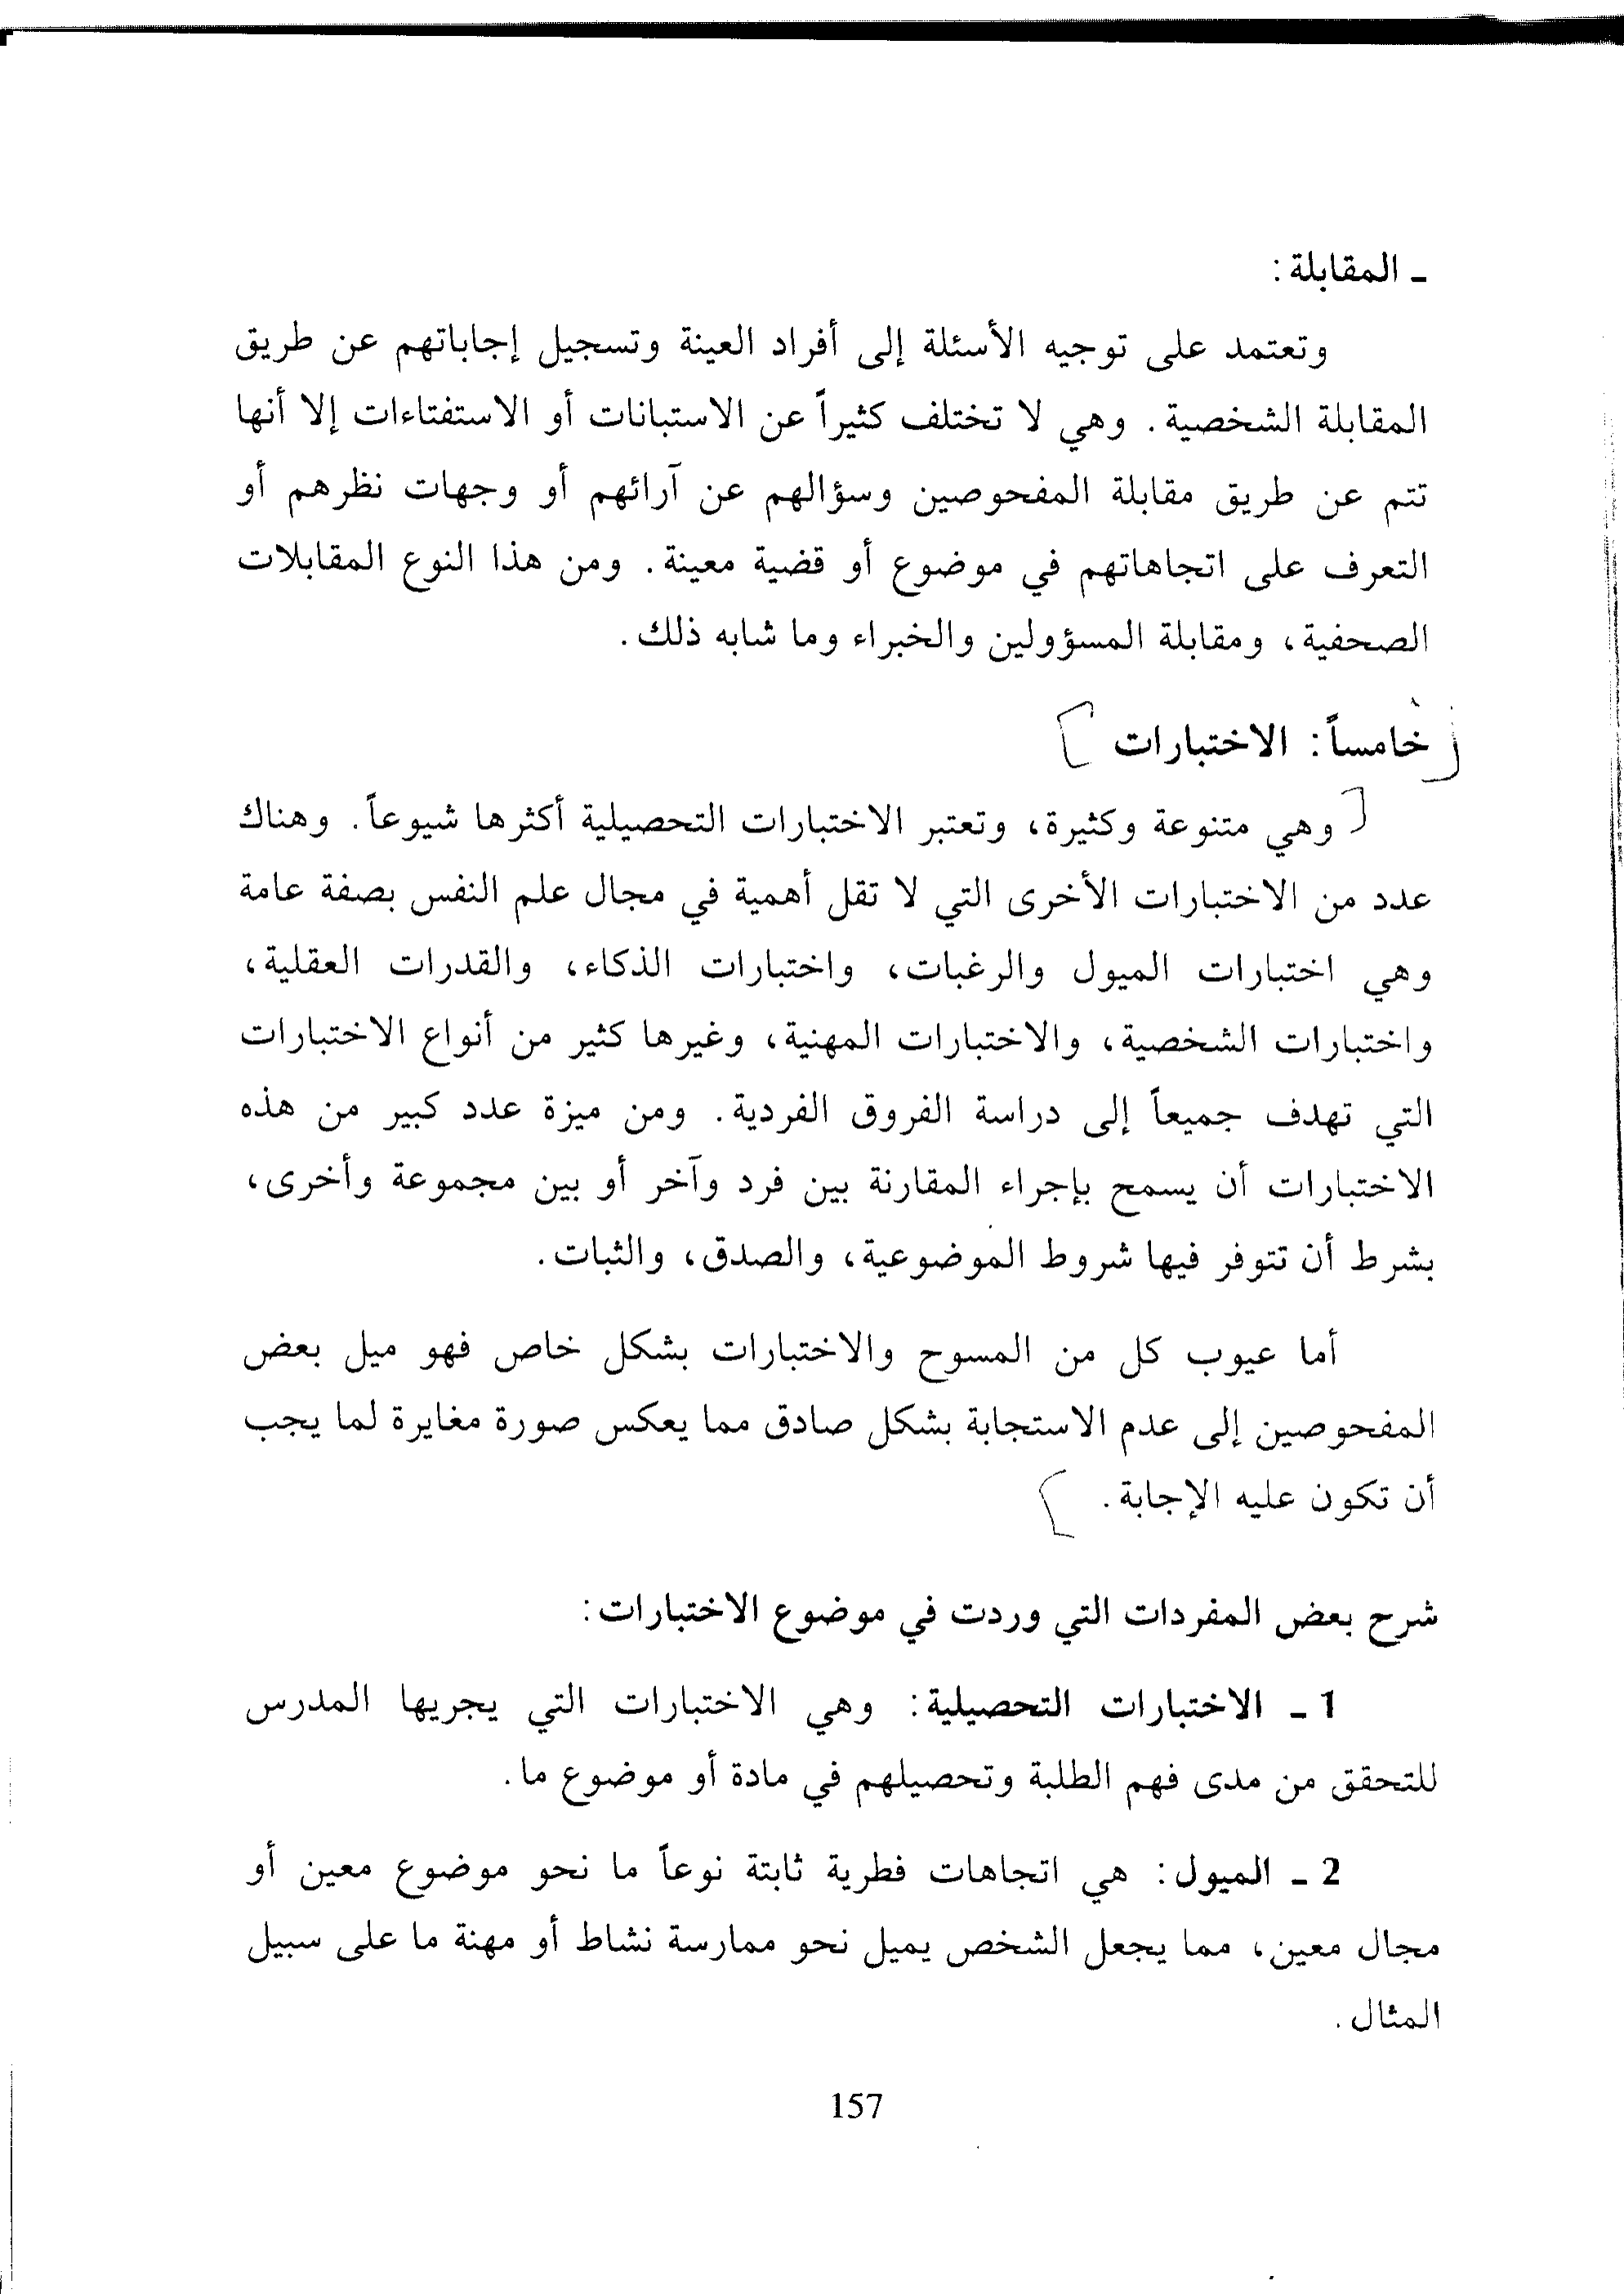 ـ المقابلة:
وتعتمد على توجيه الأسئلة إلى أفراد العينة وتسجيل إجاباتهم عن طريق
المقابلة الشخصية. وهي لا تختلف كثيراً عن الاستبانات أو الاستفتاءات إلا أنها
تتم عن طريق مقابلة المفحوصين وسؤالهم عن آرائهم أو وجهات نظرهم أو
التعرف على اتجاهاتهم في موضوع أو قضية معينة. ومن هذا النوع المقابلات
الصحفية، ومقابلة المسؤولين والخبراء وما شابه ذلك.
خامساً: الاختبارات
وهي متنوعة وكثيرة، وتعتبر الاختبارات التحصيلية أكثرها شيوعاً. وهناك
عدد من الاختبارات الأخرى التي لا تقل أهمية في مجال علم النفس بصفة عامة
وهي اختبارات الميول والرغبات، واختبارات الذكاء، والقدرات العقلية،
واختبارات الشخصية، والاختبارات المهنية، وغيرها كثير من أنواع الاختبارات
التي تهدف جميعاً إلى دراسة الفروق الفردية. ومن ميزة عدد كبير من هذه
الاختبارات أن يسمح بإجراء المقارنة بين فرد وآخر أو بين مجموعة وأخرى،
بشرط أن تتوفر فيها شروط الموضوعية، والصدق، والثبات.
أما عيوب كل من المسوح والاختبارات بشكل خاص فهو ميل بعض
المفحوصين إلى عدم الاستجابة بشكل صادق مما يعكس صورة مغايرة لما يجب
أن تكون عليه الإجابة.
شرح بعض المفردات التي وردت في موضوع الاختبارات:
1 ـ الاختبارات التحصيلية: وهي الاختبارات التي يجريها المدرس
للتحقق من مدى فهم الطلبة وتحصيلهم في مادة أو موضوع ما.
2 ـ الميول: هي اتجاهات فطرية ثابتة نوعاً ما نحو موضوع معين أو
مجال معين، مما يجعل الشخص يميل نحو ممارسة نشاط أو مهنة ما على سبيل
المثال.
157